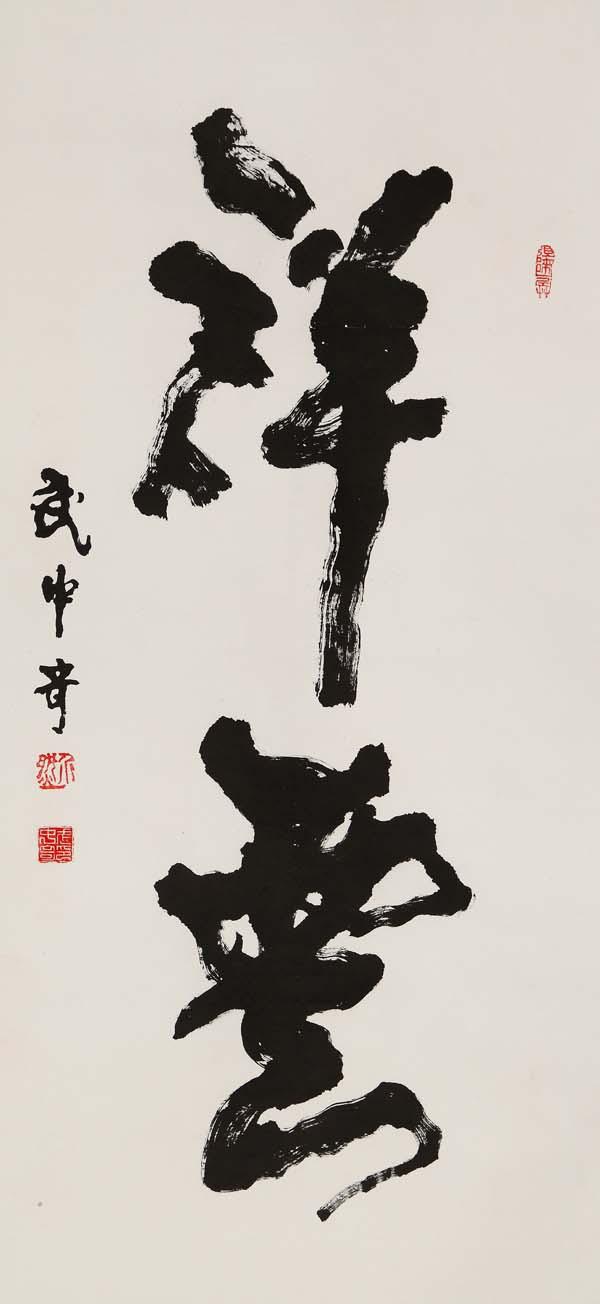 祥雲
武中奇